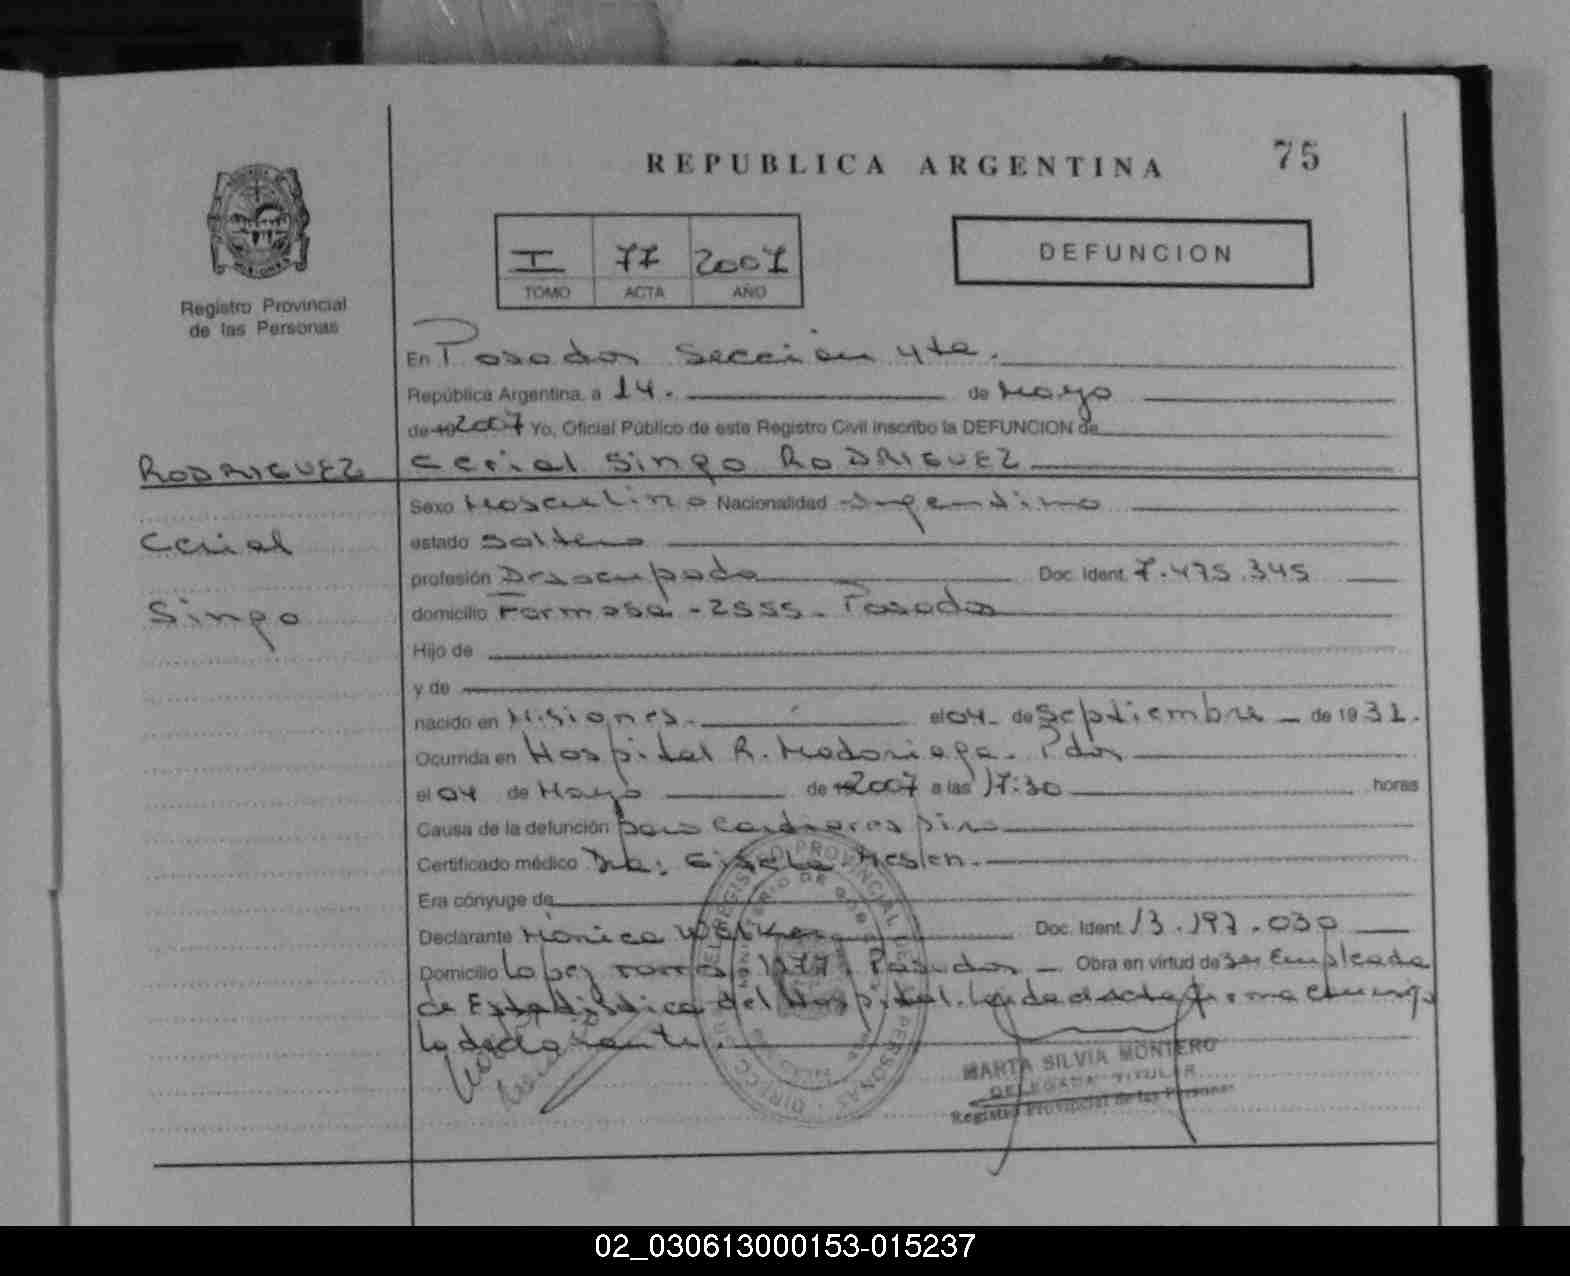 REPUBLICA ARGENTINA
75
Registro Provincial
de las Personas
I 77 2007
TOMO ACTA AÑO
DEFUNCION
En Posadas Sección 4ta.
República Argentina, a 14. de Mayo
de 19 2007 Yo, Oficial Público de este Registro Civil inscribo la DEFUNCION de
RODRIGUEZ
Cerial
Singo
Cerial Singo RODRIGUEZ
Sexo Masculino Nacionalidad Argentino
estado Soltero
profesión Desocupado Doc. Ident. 7.475.345
domicilio Formosa - 2555 - Posadas
Hijo de
y de
nacido en Misiones. el 04 - de Septiembre - de 19 31.
Ocurrida en Hospital R. Madariaga. Pdas
el 04 de Mayo de 19 2007 a las 17:30 horas
Causa de la defunción paro cardiorespiro
Certificado médico Dra: Gisela
Era cónyuge de
Declarante Mónica Doc. Ident. 13.197.030
Domicilio Lopez Torres 1177 Posadas - Obra en virtud de ser Empleada
de Estadística del Hospital. Leida el acta firma conmigo
la declarante.
MARTA SILVIA MONTERO
DELEGADA TITULAR
Registro Provincial de las Personas
02_030613000153-015237